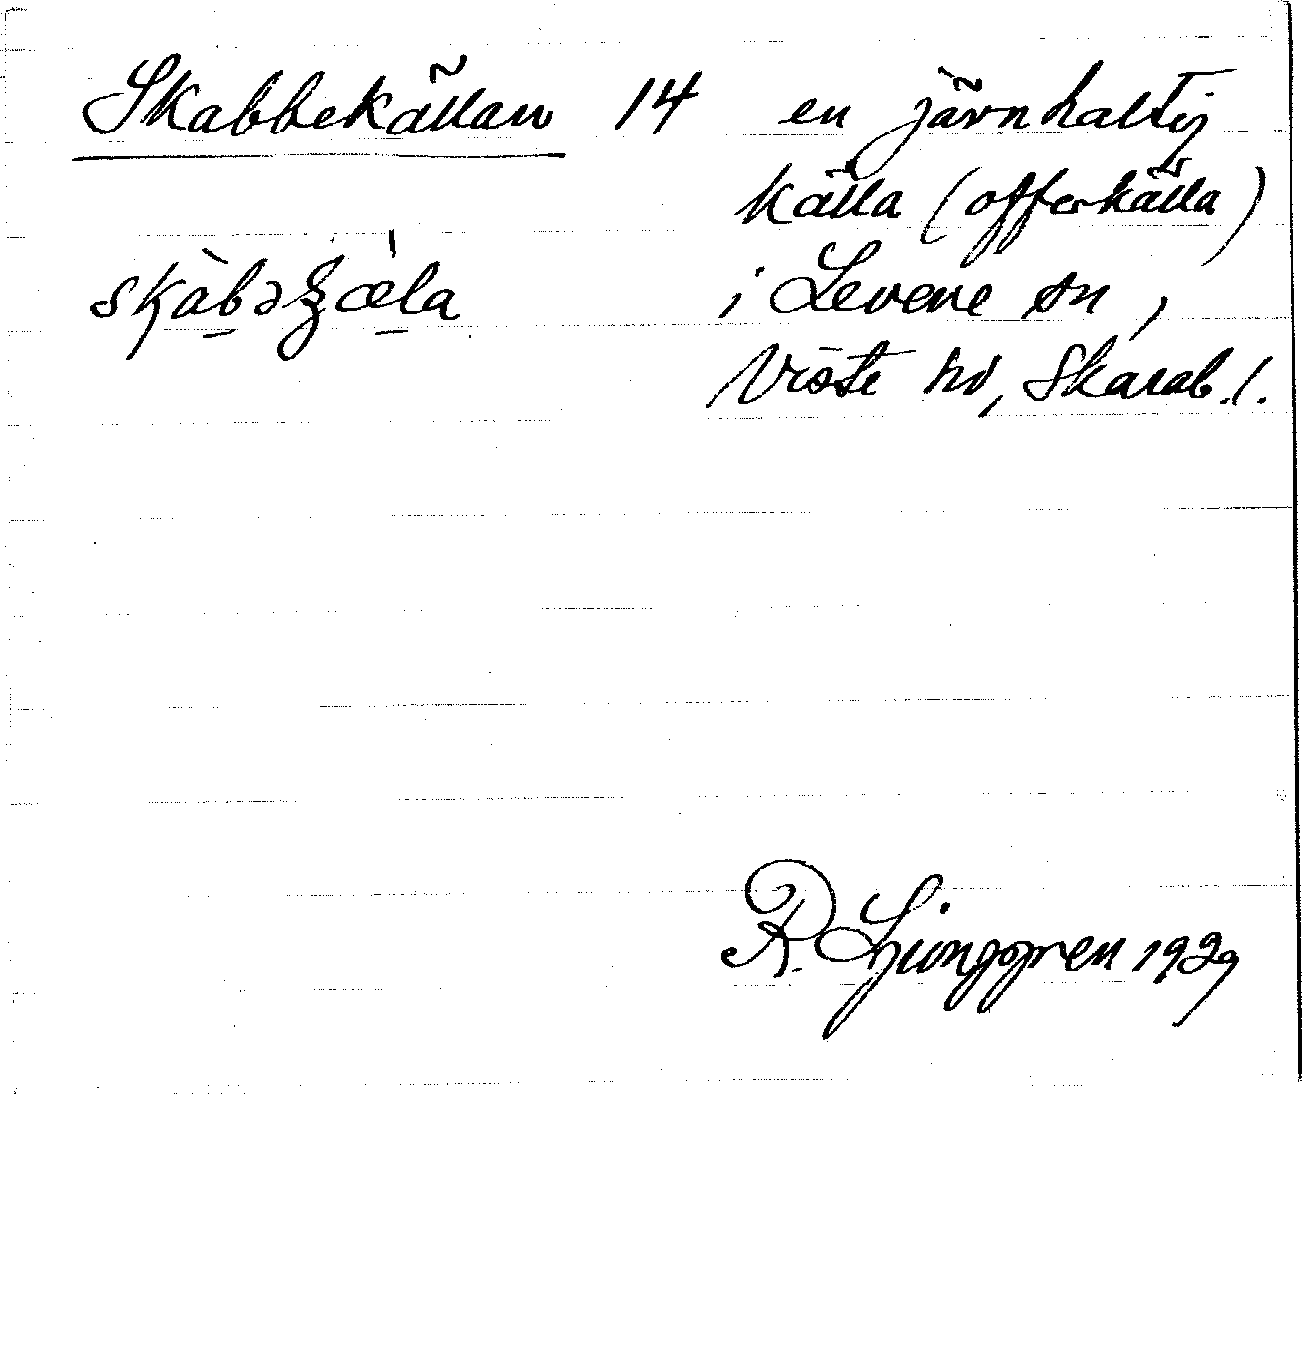 Skabbekällan 14 en järnhaltig
källa (offerkälla)
skàbə
i Levene sn,
Viste hd, Skarab. l.
R. Ljunggren 1929